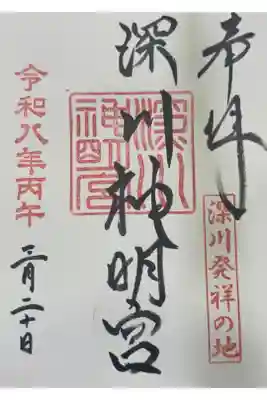 奉拝
深川発祥の地
深川神明宮
深川神明宮
令和八年丙午
二月二十日